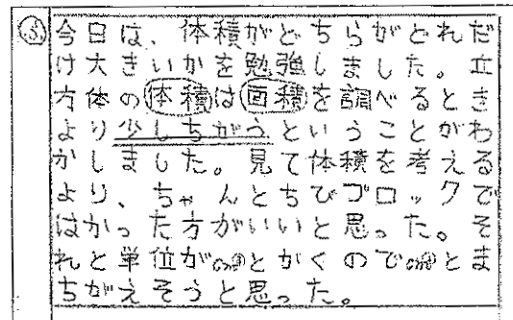 ③今日は、体積がどちらがどれだ
け大きいかを勉強しました。立
方体の体積は面積を調べるとき
より少しちがうということがわ
かしました。見て体積を考える
より、ちゃんとちびブロックで
はかった方がいいと思った。そ
れと単位が㎤とかくので㎠とま
ちがえそうと思った。